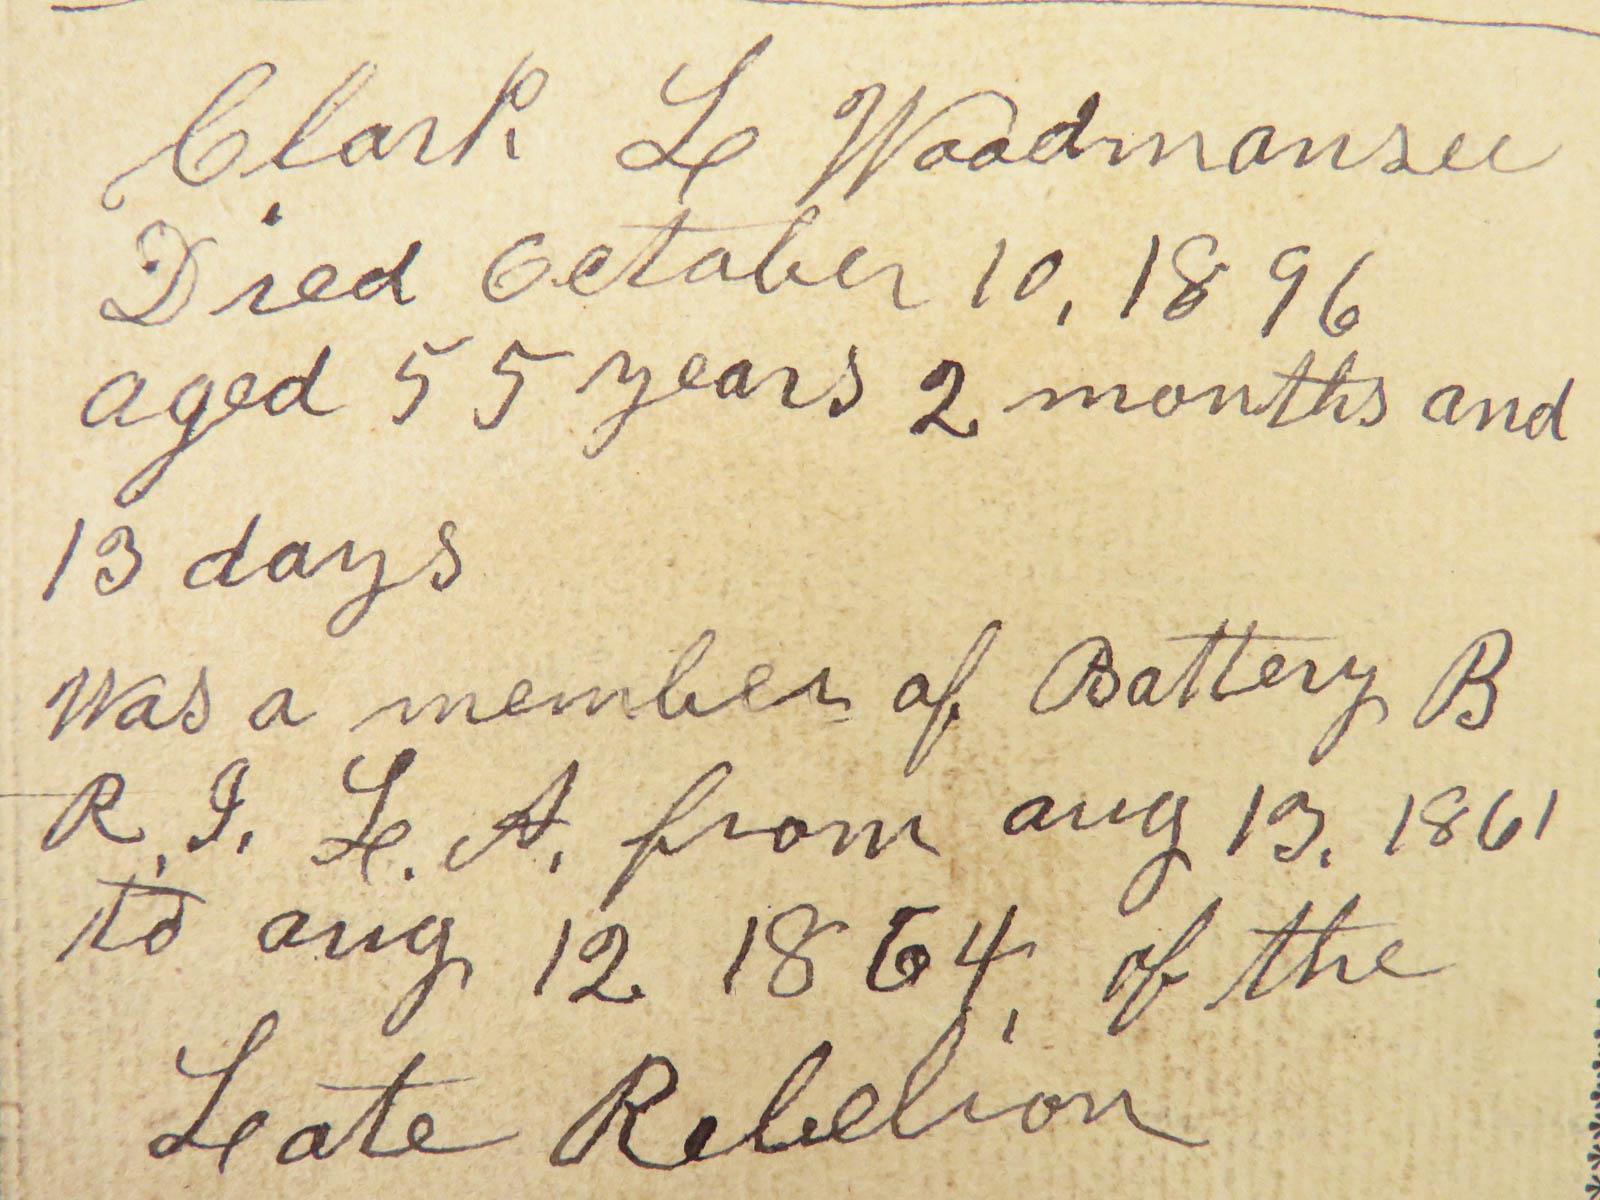 Clark L Woodmansee
Died October 10, 1896
aged 55 years 2 months and
13 days
Was a member of Battery B
R, I, L. A, from aug 13, 1861
to aug 12 1864, of the
Late Rebelion